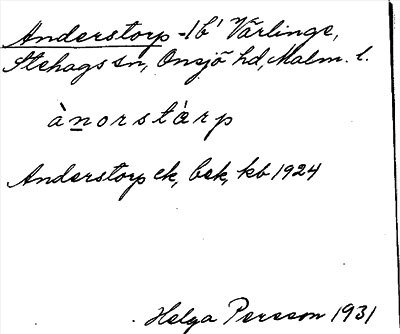 Anderstorp -lb' Värlinge,
Stehags sn, Onsjö hd, Malm. l.
ànorstàrp
Anderstorp ek, bek, kb 1924
Helga Persson 1931